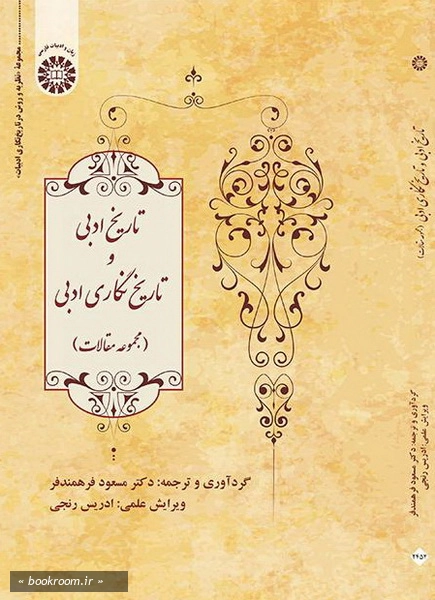 زبان و ادبیات فارسی
مجموعه «نظریه و روش در تاریخ‌نگاری ادبیات»
تاریخ ادبی
و
تاریخ نگاری ادبی
(مجموعه مقالات)
گردآوری و ترجمه: دکتر مسعود فرهمندفر
ویرایش علمی: ادریس رنجی
تاریخ ادبی و تاریخ نگاری ادبی (مجموعه مقالات)
گردآوری و ترجمه: دکتر مسعود فرهمندفر
ویرایش علمی: ادریس رنجی
۲۴۵۲
« bookroom.ir »